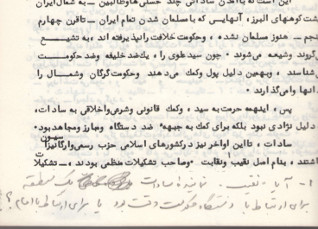 این است که با آمدن ساداتی چند حسنی‌ها وطالبین - به شمال ایران
پشت کوههای البرز، آنهایی که با مسلمان شدن تمام ایران - تا قرن چهارم
پنجم - هنوز مسلمان نشده، وحکومت خلافت رانپذیرفته اند، به تشیع
گروند وشیعه می‌شوند. چون سید علوی را، یک ضد خلیفه وضد حکومت
شناسند، وبهمین دلیل پول وکمک می‌دهند وحکومت گرگان وشمال را
آنها وامی‌گذارند.
پس، اینهمه حرمت به سید، وکمک قانونی وشرعی واخلاقی به سادات،
دلیل نژادی نبود بلکه برای کمک به جبههٔ ضد دستگاه ومبارز ومجاهد بود.
سادات، تا این اواخر نیز در کشورهای اسلامی حزب رسمی وارگانیزاسیون
داشتند، بنام اصل نقیب ونقابت - وصاحب تشکیلات منظمی بودند - تشکیلات
۱- آیا نقیب نمایندهٔ سادات یک منطقه
برای ارتباط با دستگاه حکومت وقت بود یا برای ارتباط با امام؟